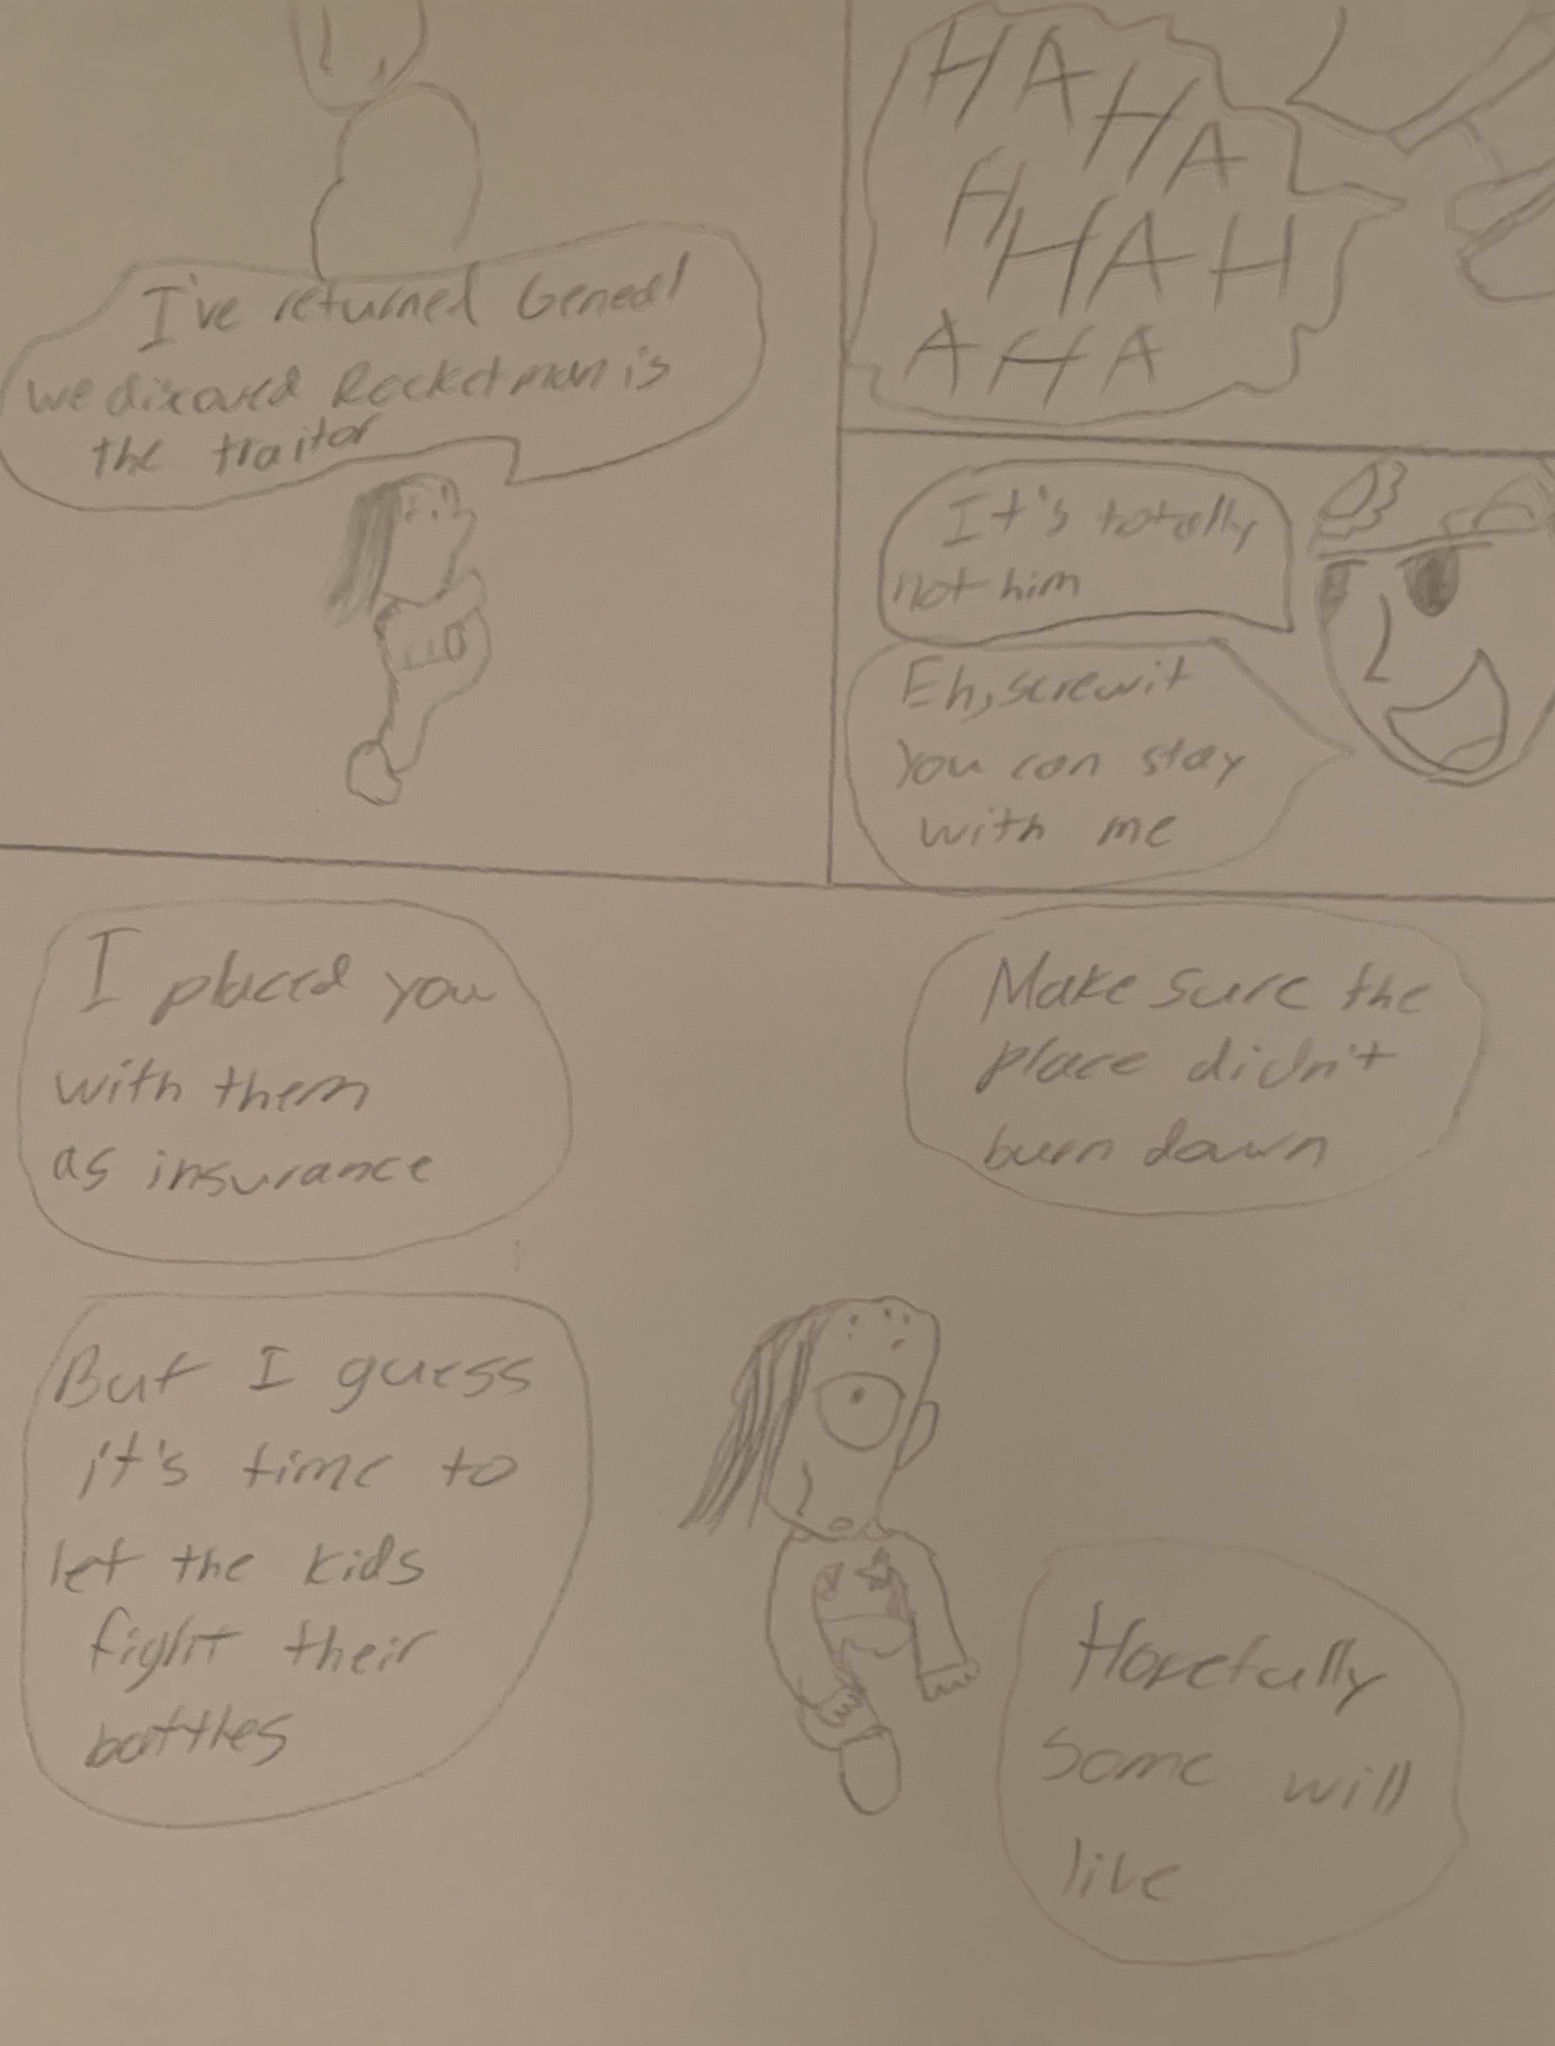 I've returned General
we discoverd Rocketman is
the traitor
HAHA
HHAH
AHA
It's totally
not him
Eh, screw it
you can stay
with me
I placed you
with them
as insurance
Make sure the
place didn't
burn down
But I guess
it's time to
let the kids
fight their
battles
Hopefully
some will
live